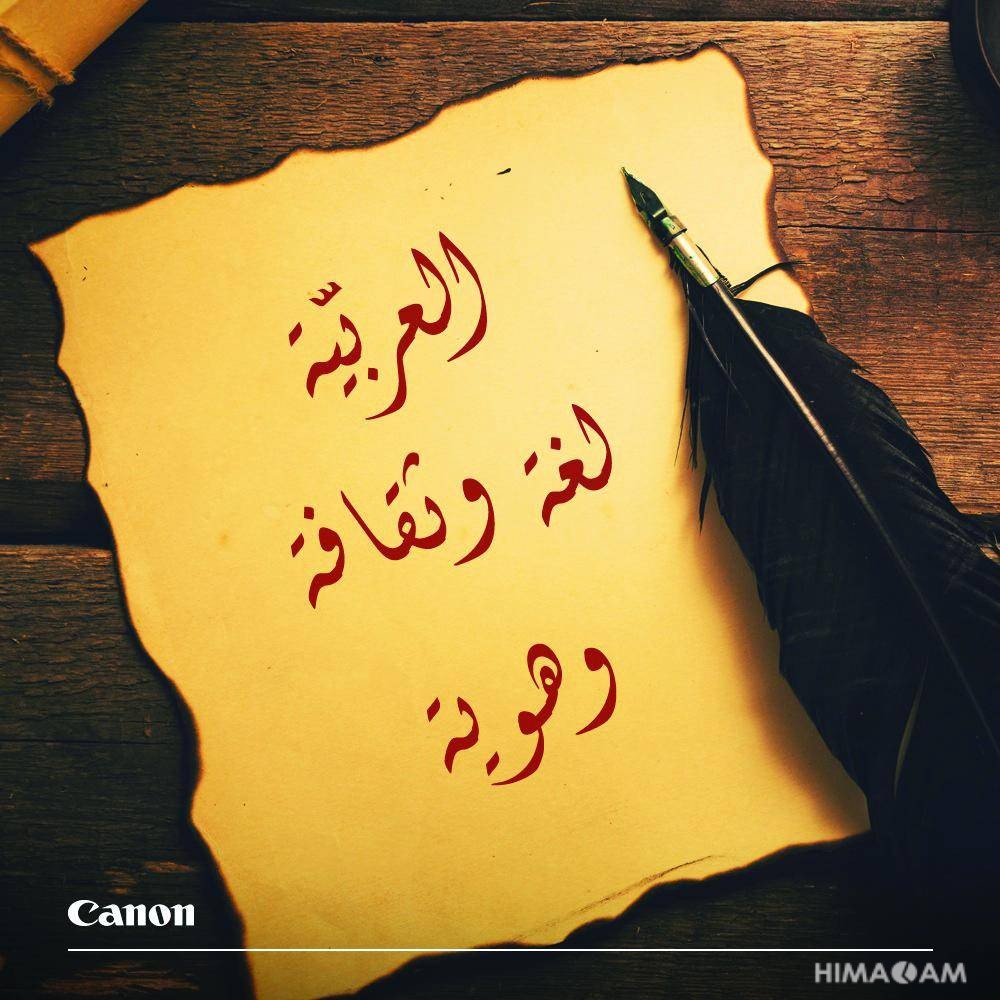 العربيَّة
لغة وثقافة
وهوية
Canon
HIMACAM